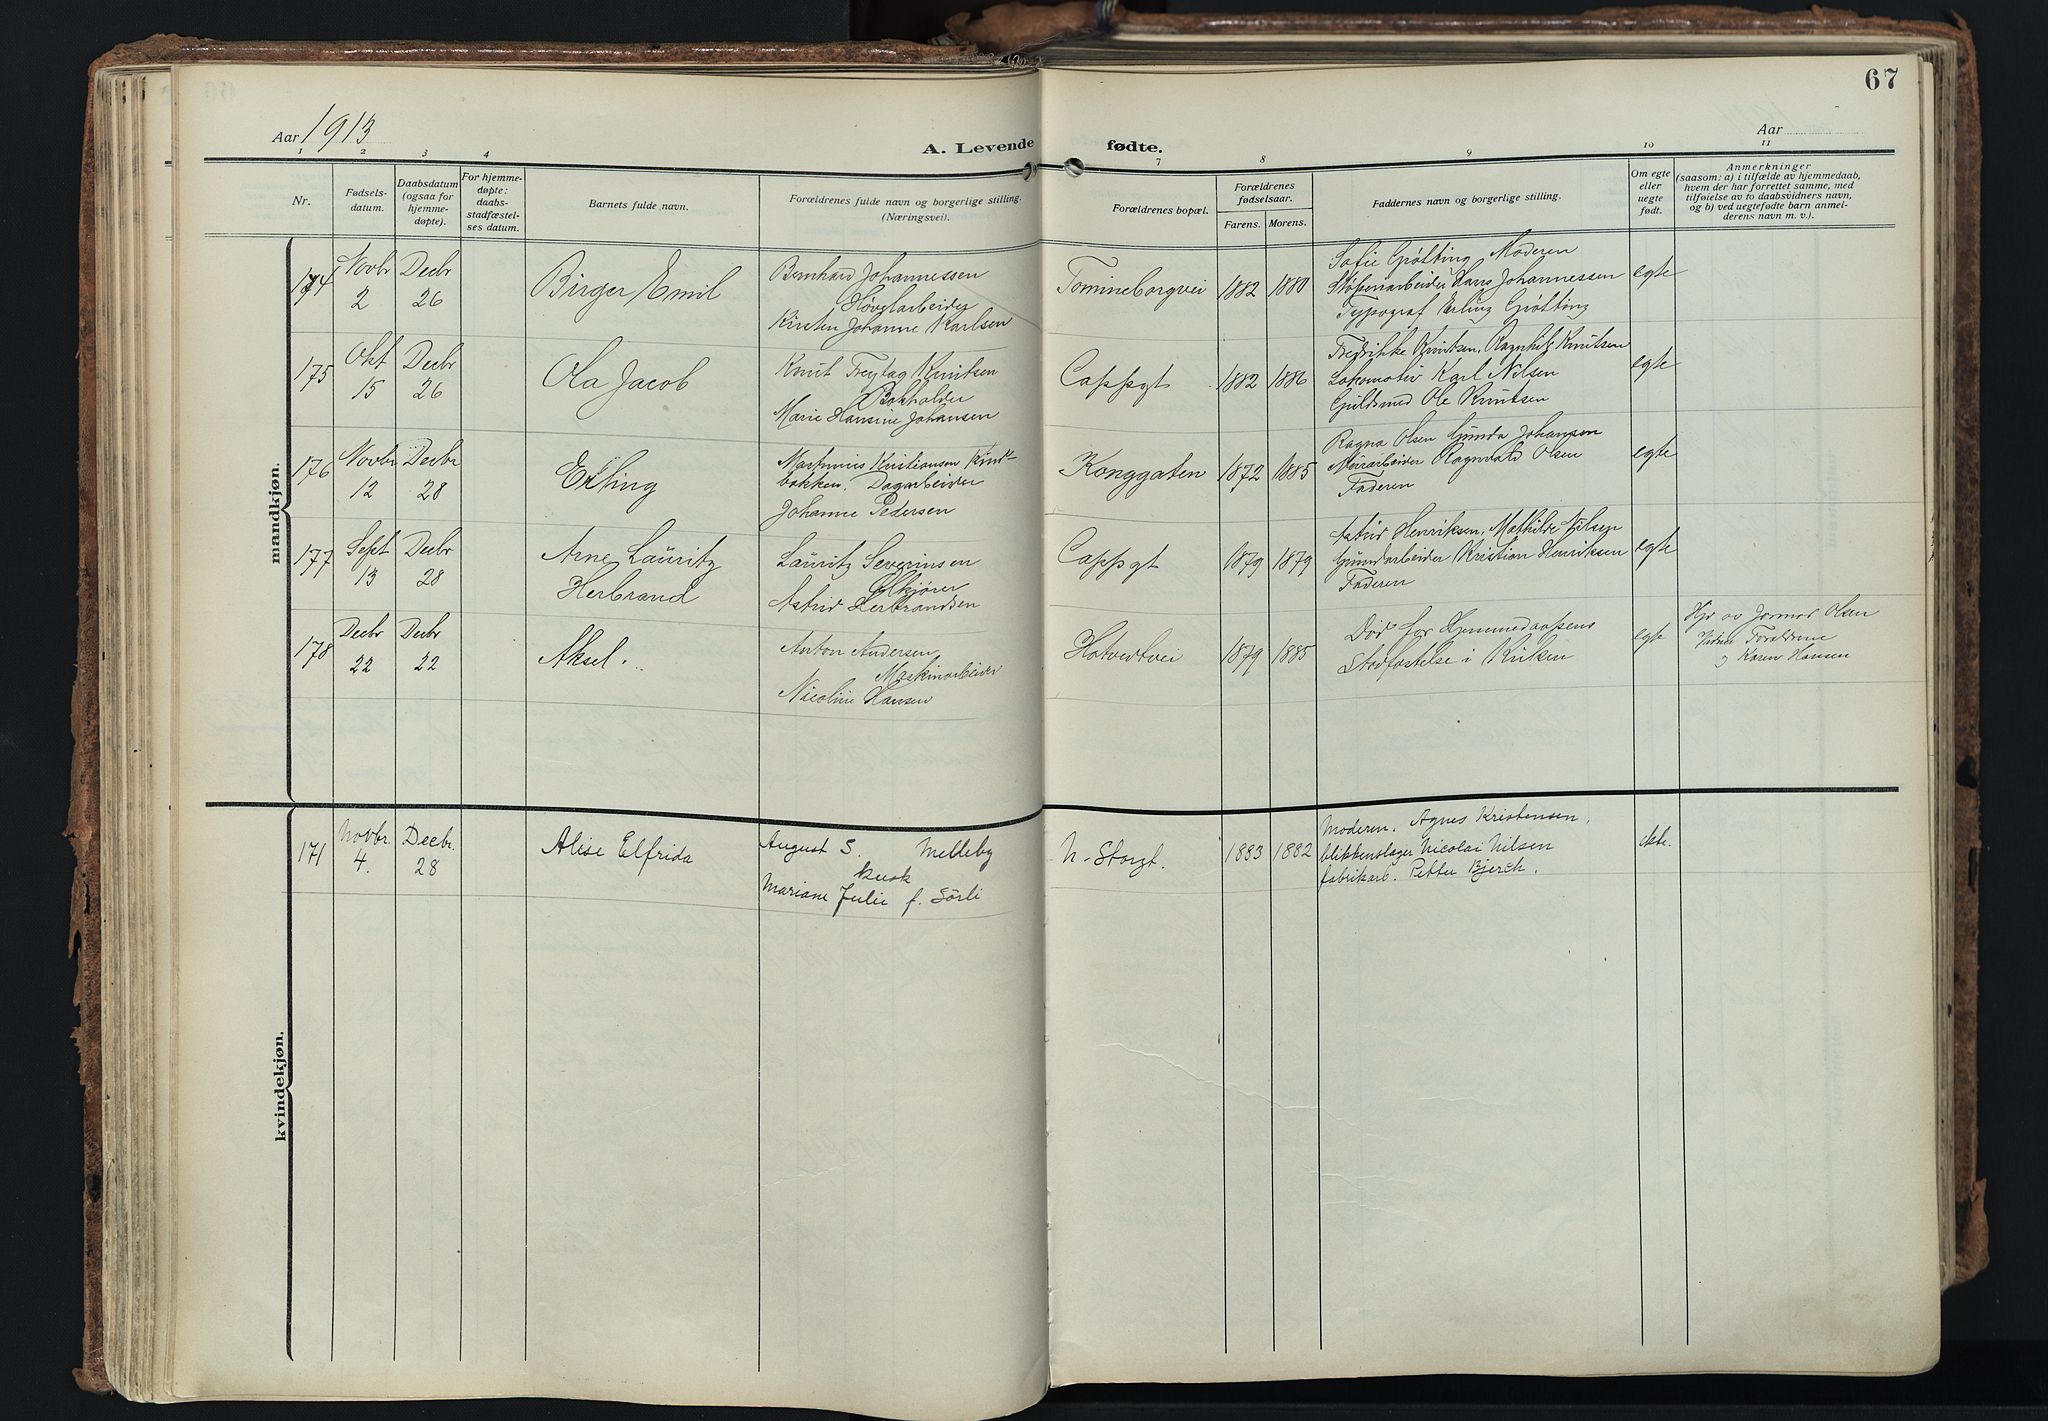 67
Aar 1913
A. Levende fødte.
Aar
1 2 3 4 7 8 9 10 11
Nr.
Fødsels-
datum.
Daabsdatum
(ogsaa for
hjemme-
døpte).
For hjemme-
døpte:
daabs-
stadfæstel-
ses datum.
Barnets fulde navn.
Forældrenes fulde navn og borgerlige stilling.
(Næringsvei).
Forældrenes bopæl.
Forældrenes
fødselsaar.
Farens. Morens.
Faddernes navn og borgerlige stilling.
Om egte
eller
uegte
født.
Anmerkninger
(saasom: a) i tilfælde av hjemmedaab,
hvem der har forrettet samme, med
tilføielse av to daabsvidners navn,
og b) ved uegtefødte barn anmel-
derens navn m. v.).
mandkjøn.
174
Novbr
2
Decbr
26
Birger Emil
Bernhard Johannessen
Høvelarbeider
Kirsten Johanne Karlsen
Tomineborgvei
1882
1880
Sofie Grøtting Moderen
Støperiarbeider Hans Johannessen
Typograf Erling Grøtting
egte
175
Okt
15
Decbr
26
Ola Jacob
Knut Freytag Knutsen
Bokholder
Marie Hansine Johansen
Cappsgt
1882
1886
Fredrikke Knutsen, Ragnhild Knutsen
Lokomotiv Karl Nilsen
Guldsmed Ole Knutsen
egte
176
Novbr
12
Decbr
28
Erling
Martinius Kristiansen
bakken. Dagarbeider
Johanne Pedersen
Konggaten
1872
1885
Ragna Olsen Gunda Johansen
Murarbeider Ragnvald Olsen
Faderen
egte
177
Sept
13
Decbr
28
Arne Lauritz
Herbrand
Lauritz Severinsen
Ølkjører
Astrid Herbrandsen
Cappsgt
1879
1879
Astrid Henriksen, Mathilde Nilsen
Grundarbeider Kristian Henriksen
Faderen
egte
178
Decbr
22
Decbr
22
Aksel.
Anton Andersen
Maskinarbeider
Nicoline Hansen
Hotvedtvei
1879
1885
Død før Hjemmedaapens
Stadfæstelse i Kirken
egte
Hjd av Olsen
Vidner Foreldrene
og Karen Hansen
kvindekjøn.
171
Novbr.
4.
Decbr.
28
Alise Elfrida
August S. Melleby
kusk
Mariane Julie f. Sörli
N. Storgt.
1883
1882
Moderen. Agnes Kristensen.
blikkenslager Nicolai Nilsen
fabrikarb. Petter Bjerch.
ekte.